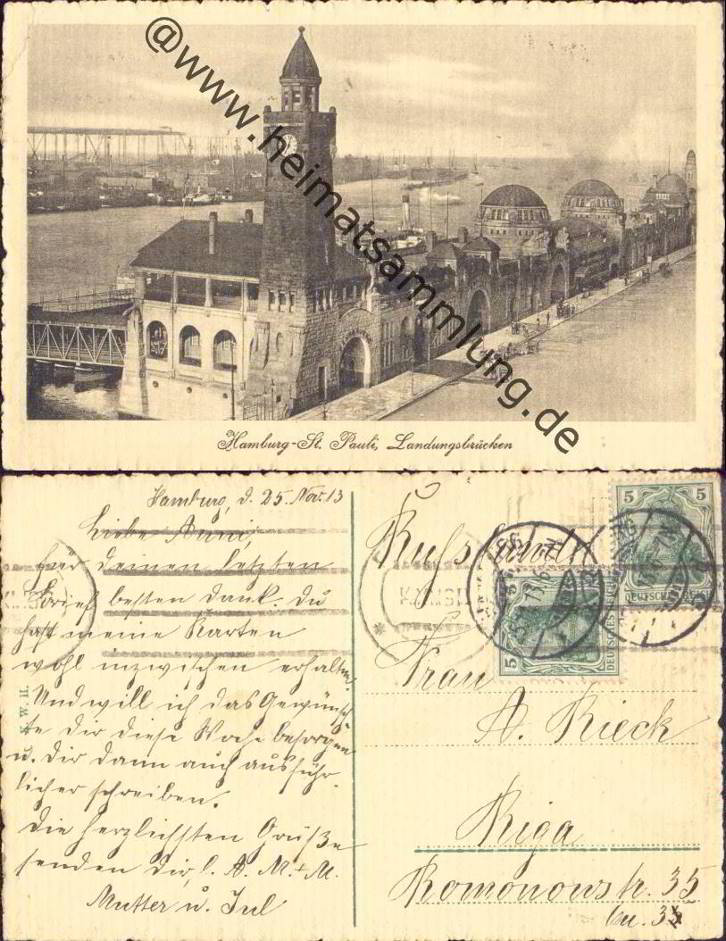 @www.heimatsammlung.de
Hamburg-St. Pauli, Landungsbrücken
Hamburg, d. 25. Nov. 13
Liebe Anni,
Für deinen letzten
Brief besten Dank. Du
hast meine Karten
wohl inzwischen erhalten.
Und will ich das Gewünsch-
te dir diese Woche besorgen
u. dir dann auch ausführ-
licher schreiben.
Die herzlichsten Grüße
senden dir, l. A. M. + M.
Mutter u. Jul
Russland
Frau
A. Rieck
Riga
Romonowstr. 35
5
5
5
DEUTSCHES